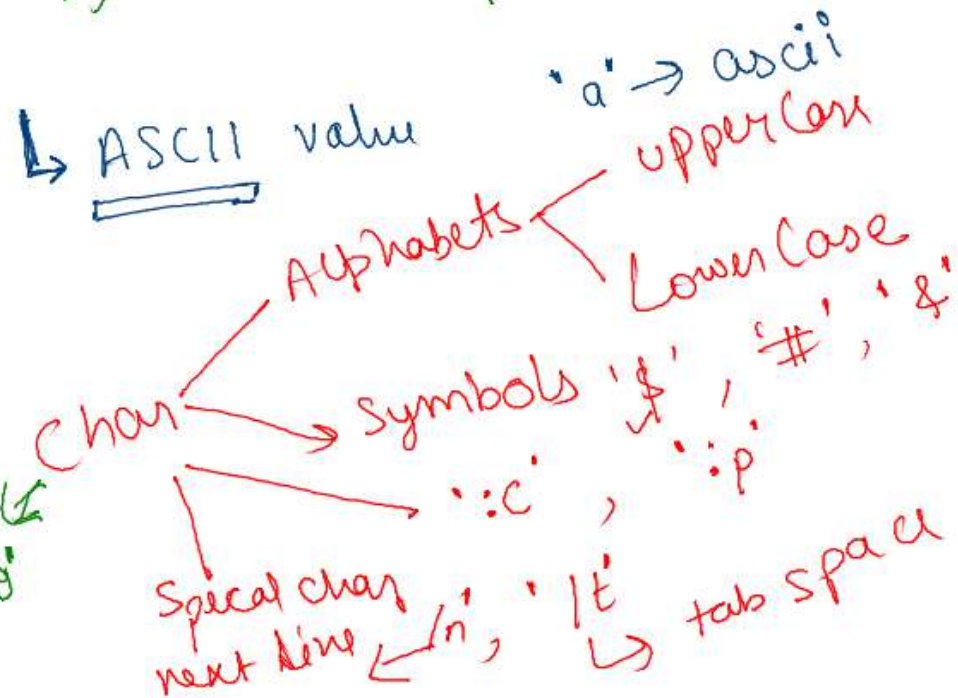 ASCII value
'a' → ascii
Alphabets
upperCase
LowerCase
Char
symbols '$', '#', '&'
':c', ':p'
Specal char '/n', '/t'
next line
tab space